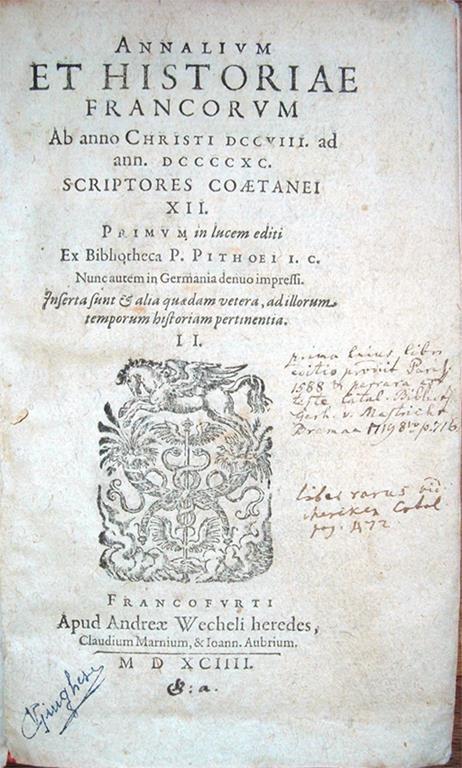 ANNALIVM
ET HISTORIAE
FRANCORVM
Ab anno CHRISTI DCCVIII. ad
ann. DCCCCXC.
SCRIPTORES COÆTANEI
XII.
PRIMVM in lucem editi
Ex Bibliotheca P. PITHOEI I. C.
Nunc autem in Germania denuo impressi.
Inserta sunt & alia quædam vetera, ad illorum
temporum historiam pertinentia.
II.
prima huius libri
editio prodiit Paris
1588 & perrara
teste Catal. Biblioth
Gerh. v. Mastricht
1719 8vo p. 716
liber rarus
pag. 472
FRANCOFVRTI
Apud Andreæ Wecheli heredes,
Claudium Marnium, & Ioann. Aubrium.
M D XCIIII.
&: a.